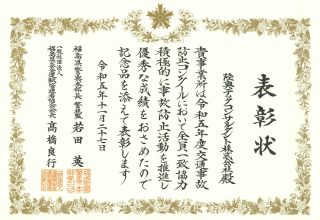 表彰状
陸奥テックコンサルタント株式会社殿
貴事業所は令和五年度交通事故
防止コンクールにおいて全員一致協力
積極的に事故防止活動を推進し
優秀な成績をおさめたので
記念品を添えて表彰します
令和五年十一月二十七日
福島県警察本部長 警視長 若田 英
一般社団法人
髙橋良行